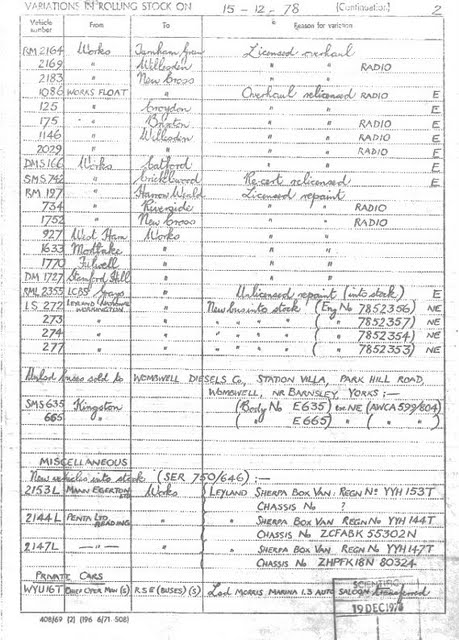 VARIATIONS IN ROLLING STOCK ON 15-12-78 (Continuation) 2
Vehicle number From To Reason for variation
RM 2164 Works Turnham Green Licensed overhaul
2169 " Willesden " " RADIO
2183 " New Cross " "
1086 WORKS FLOAT " Overhaul relicensed RADIO E
125 " Croydon " " E
175 " Brixton " " RADIO E
1146 " Willesden " " RADIO E
2029 " " " " RADIO E
DMS 166 Works Catford " " E
SMS 742 " Cricklewood Re-cert relicensed E
RM 197 " Harrow Weald Licensed repaint
734 " Riverside " " RADIO
1752 " New Cross " " RADIO
927 West Ham Works " "
1633 Mortlake " " "
1770 Fulwell " " "
DM 1727 Stamford Hill " " "
RML 2355 LCBS Grays " Unlicensed repaint (into stock) E
LS 272 LEYLAND NATIONAL WORKINGTON " New bus into stock (Eng No 7852356) NE
273 " " " " " " ( " 7852357) NE
274 " " " " " " ( " 7852354) NE
277 " " " " " " ( " 7852353) NE
Unlicd buses sold to WOMBWELL DIESELS Co., STATION VILLA, PARK HILL ROAD,
WOMBWELL, NR BARNSLEY, YORKS :—
SMS 635 Kingston (Body No E635) exc NE (AWCA 599/804)
665 " ( " E665) " ( " )
MISCELLANEOUS
New vehicles into stock (SER 750/646) :—
2153L MANN EGERTON LTD Works LEYLAND SHERPA BOX VAN: REGN No YYH 153T
CHASSIS No ?
2144L PENTA LTD READING " " SHERPA BOX VAN REGN No YYH 144T
CHASSIS No ZCFABK 55302N
2147L —"— " " SHERPA BOX VAN REGN No YYH 147T
CHASSIS No ZHPFK18N 80324
PRIVATE CARS
WYU 16T CHIEF OPER MAN (S) R S E (BUSES) (S) Lsd MORRIS MARINA 1.3 AUTO SALOON transferred
SCIENTIFIC
19 DEC 1978
408/69 (2) (196 6/71 508)